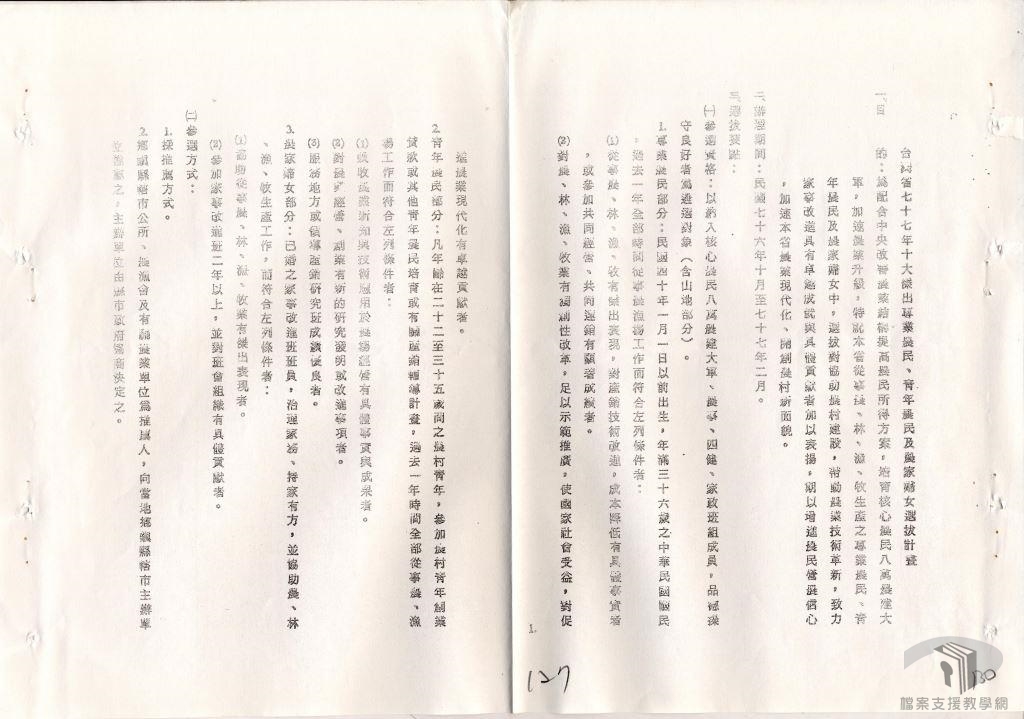 台灣省七十七年十大傑出專業農民、青年農民及農家婦女選拔計畫
一、目　　的：為配合中央改善農業結構提高農民所得方案，培育核心農民八萬農建大
軍，加速農業升級，特就本省從事農、林、漁、牧生產之專業農民、青
年農民及農家婦女中，選拔對協助農村建設，帶動農業技術革新，致力
家事改進具有卓越成就與具體貢獻者加以表揚，期以增進農民營農信心
，加速本省農業現代化、開創農村新面貌。
二、辦理期間：民國七十六年十月至七十七年二月。
三、選拔要點：
㈠參選資格：以納入核心農民八萬農建大軍、農事、四健、家政班組成員，品德操
守良好者為遴選對象（含山地部分）。
1.專業農民部分：民國四十年一月一日以前出生，年滿三十六歲之中華民國國民
，過去一年全部時間從事農漁場工作而符合左列條件者：
⑴從事農、林、漁、牧有傑出表現，對產銷技術改進，成本降低有具體事實者
，或參加共同經營、共同運銷有顯著成績者。
⑵對農、林、漁、牧業有獨創性改革，足以示範推廣，使國家社會受益，對促
進農業現代化有卓越貢獻者。
2.青年農民部分：凡年齡在二十二至三十五歲間之農村青年，參加農村青年創業
貸款或其他青年農民培育或有關產銷輔導計畫，過去一年時間全部從事農、漁
場工作而符合左列條件者：
⑴吸收農漁新知與技術應用於農場經營有具體事實與成果者。
⑵對農場經營、副業有新的研究發明或改進事項者。
⑶服務地方或領導產銷研究班成績優良者。
3.農家婦女部分：已婚之家事改進班班員，治理家務、持家有方，並協助農、林
、漁、牧生產工作，而符合左列條件者：
⑴協助從事農、林、漁、牧業有傑出表現者。
⑵參加家事改進班二年以上，並對班會組織有具體貢獻者。
㈡參選方式：
1.採推薦方式。
2.鄉鎮縣轄市公所、農漁會及有關農業單位為推薦人，向當地鄉鎮縣轄市主辦單
位推薦之，主辦單位由縣市政府協商決定之。
1.
127
130
檔案支援教學網